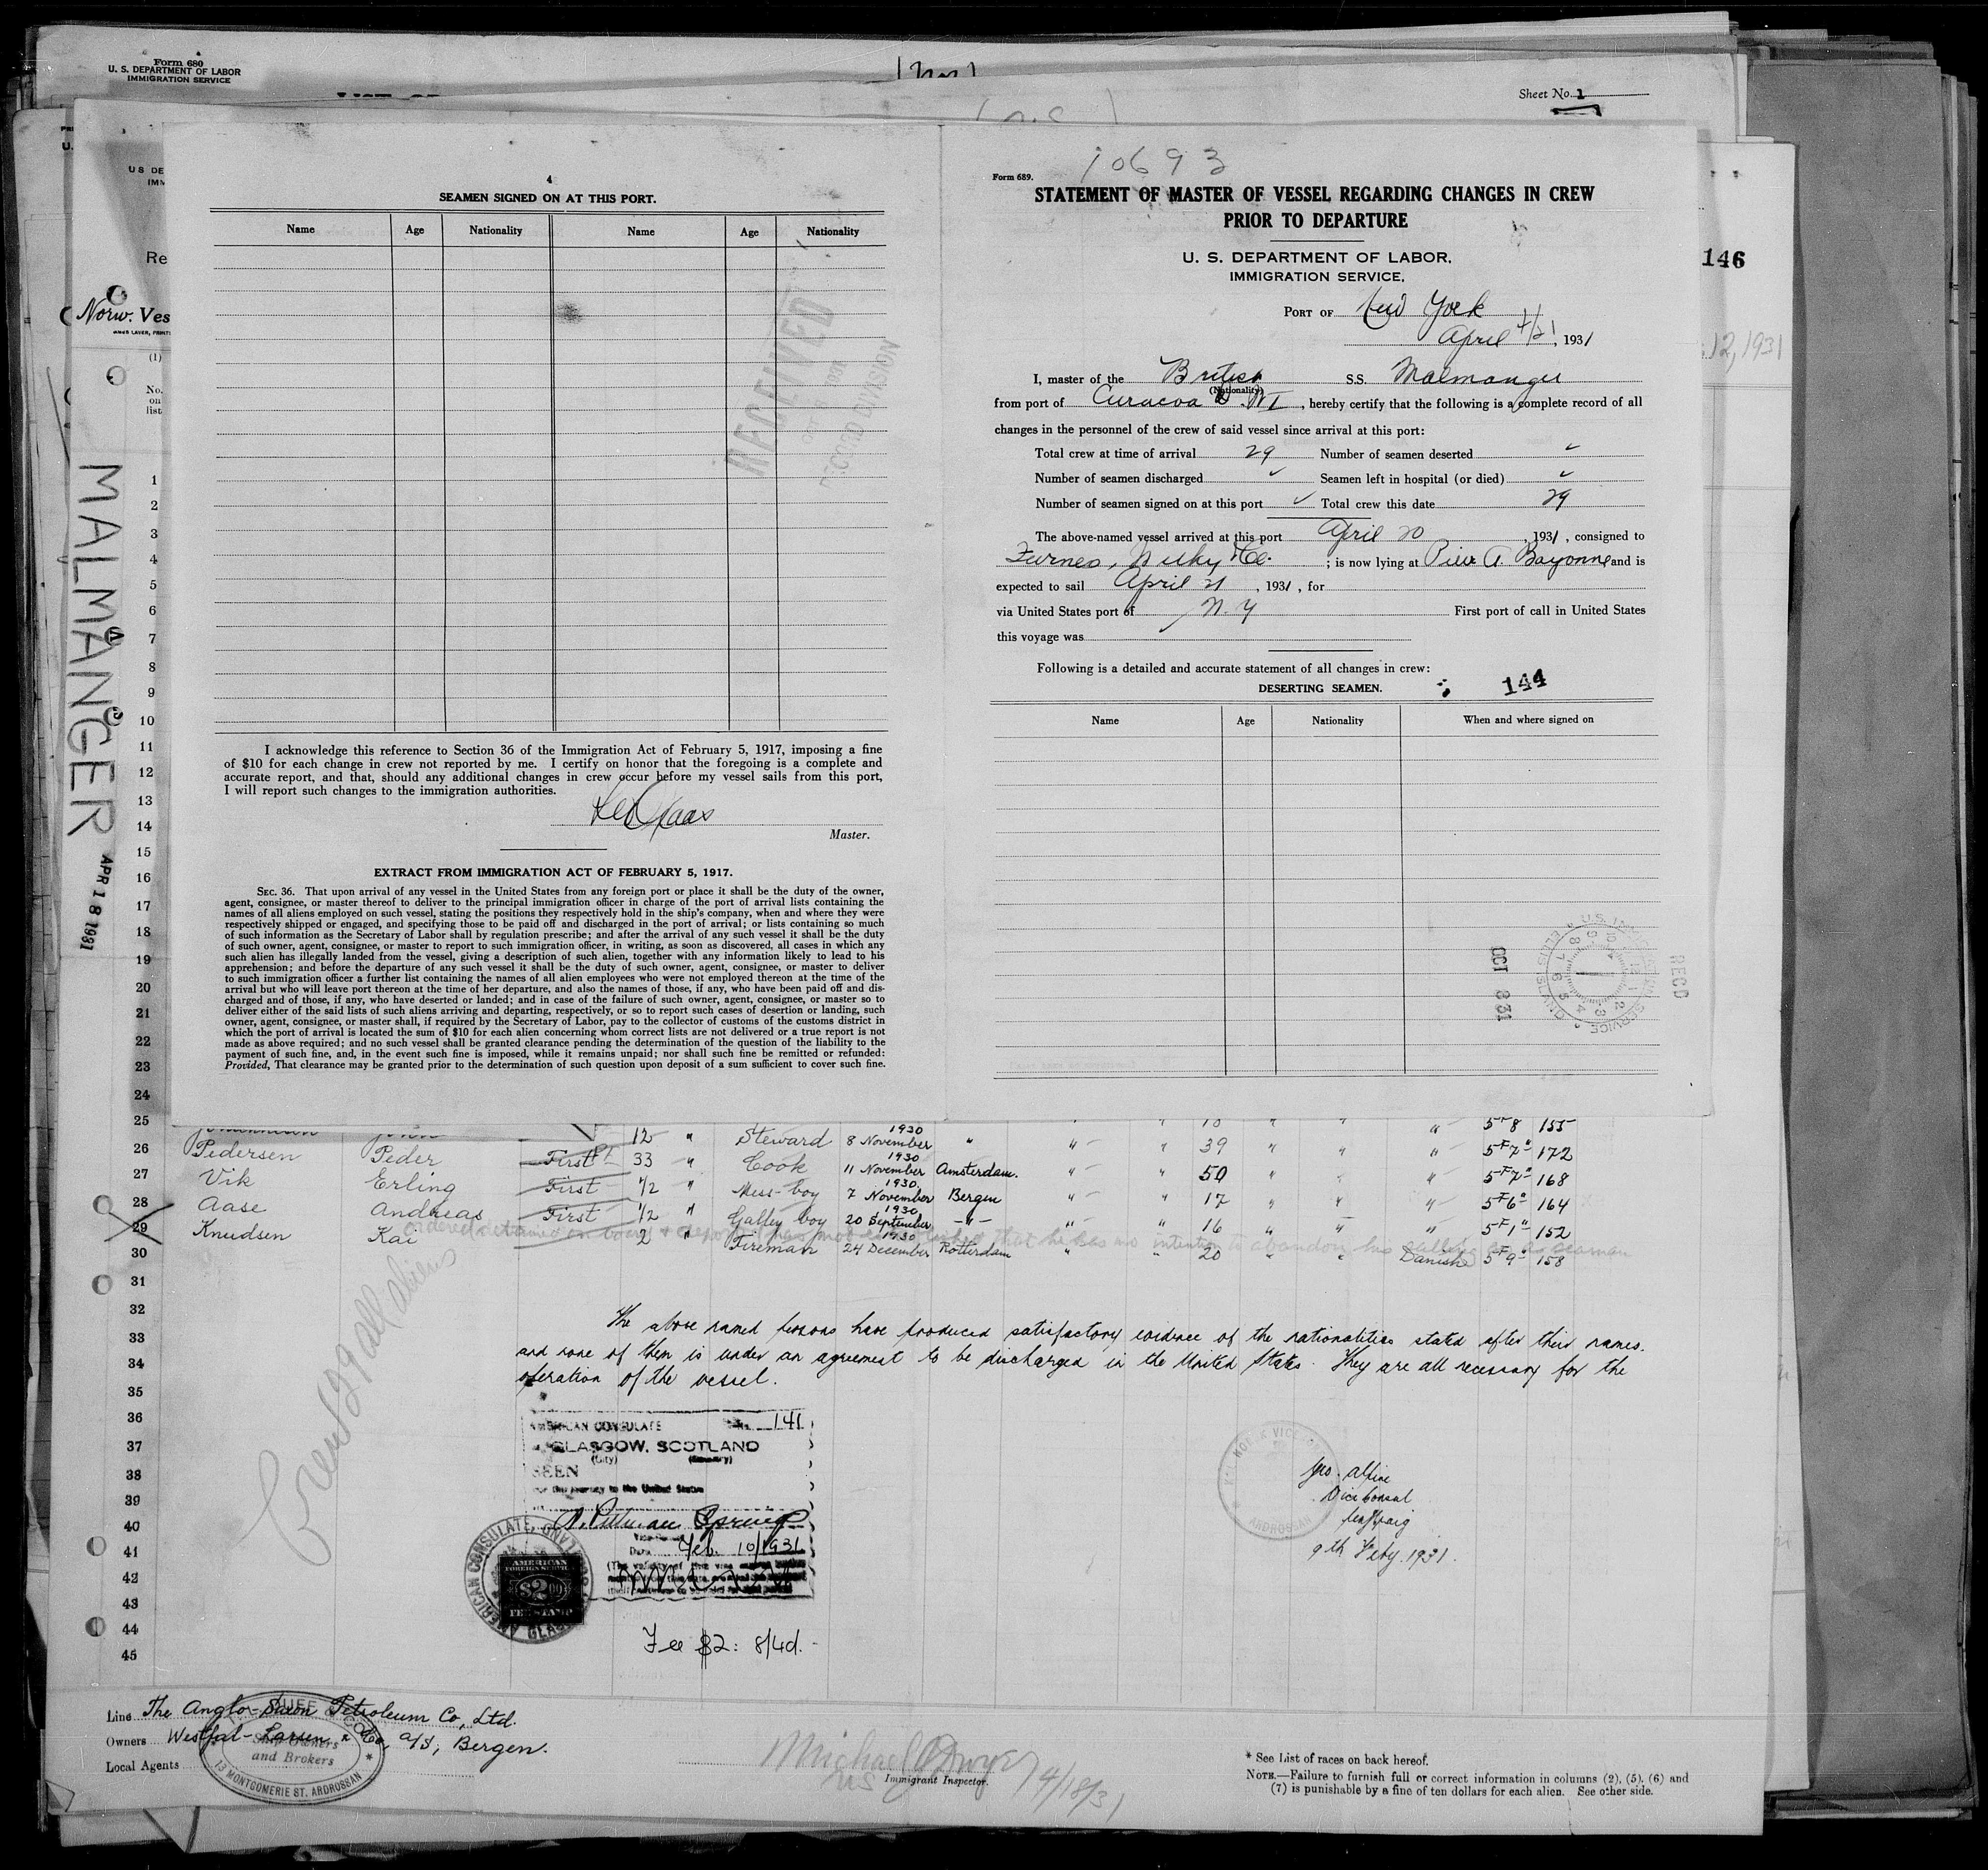 Form 680
U. S. DEPARTMENT OF LABOR
IMMIGRATION SERVICE
Sheet No. 1
Norw. Ves
(1)
No.
on
list
MALMANGER
APR 18 1931
146
12, 1931
4
SEAMEN SIGNED ON AT THIS PORT.
Name Age Nationality Name Age Nationality
RECEIVED
RECORD DIVISION
I acknowledge this reference to Section 36 of the Immigration Act of February 5, 1917, imposing a fine
of $10 for each change in crew not reported by me. I certify on honor that the foregoing is a complete and
accurate report, and that, should any additional changes in crew occur before my vessel sails from this port,
I will report such changes to the immigration authorities.
Master.
EXTRACT FROM IMMIGRATION ACT OF FEBRUARY 5, 1917.
SEC. 36. That upon arrival of any vessel in the United States from any foreign port or place it shall be the duty of the owner,
agent, consignee, or master thereof to deliver to the principal immigration officer in charge of the port of arrival lists containing the
names of all aliens employed on such vessel, stating the positions they respectively hold in the ship's company, when and where they were
respectively shipped or engaged, and specifying those to be paid off and discharged in the port of arrival; or lists containing so much
of such information as the Secretary of Labor shall by regulation prescribe; and after the arrival of any such vessel it shall be the duty
of such owner, agent, consignee, or master to report to such immigration officer, in writing, as soon as discovered, all cases in which any
such alien has illegally landed from the vessel, giving a description of such alien, together with any information likely to lead to his
apprehension; and before the departure of any such vessel it shall be the duty of such owner, agent, consignee, or master to deliver
to such immigration officer a further list containing the names of all alien employees who were not employed thereon at the time of the
arrival but who will leave port thereon at the time of her departure, and also the names of those, if any, who have been paid off and dis-
charged and of those, if any, who have deserted or landed; and in case of the failure of such owner, agent, consignee, or master so to
deliver either of the said lists of such aliens arriving and departing, respectively, or so to report such cases of desertion or landing, such
owner, agent, consignee, or master shall, if required by the Secretary of Labor, pay to the collector of customs of the customs district in
which the port of arrival is located the sum of $10 for each alien concerning whom correct lists are not delivered or a true report is not
made as above required; and no such vessel shall be granted clearance pending the determination of the question of the liability to the
payment of such fine, and, in the event such fine is imposed, while it remains unpaid; nor shall such fine be remitted or refunded:
Provided, That clearance may be granted prior to the determination of such question upon deposit of a sum sufficient to cover such fine.
10693
Form 689.
STATEMENT OF MASTER OF VESSEL REGARDING CHANGES IN CREW
PRIOR TO DEPARTURE
U. S. DEPARTMENT OF LABOR.
IMMIGRATION SERVICE.
PORT OF New York
April 4/21, 1931
I, master of the British S.S. Malmanger
(Nationality)
from port of Curacoa D.W.I, hereby certify that the following is a complete record of all
changes in the personnel of the crew of said vessel since arrival at this port:
Total crew at time of arrival 29 Number of seamen deserted ✓
Number of seamen discharged ✓ Seamen left in hospital (or died) ✓
Number of seamen signed on at this port ✓ Total crew this date 29
The above-named vessel arrived at this port April 20, 1931, consigned to
Furness, Withy & Co. ; is now lying at Pier A. Bayonne and is
expected to sail April 21, 1931, for
via United States port of N. Y First port of call in United States
this voyage was
Following is a detailed and accurate statement of all changes in crew:
DESERTING SEAMEN. 144
Name Age Nationality When and where signed on
OCT 8 31
RECD
1
2
3
4
5
6
7
8
9
10
11
12
13
14
15
16
17
18
19
20
21
22
23
24
25 5F8 155
26 Pedersen Peder First 12 " Steward 1930 8 November " " " 39 " " " 5F7" 172
27 Vik Erling First 33 " Cook 1930 11 November Amsterdam. " " 50 " " " 5F7" 168
28 Aase Andreas First 1/2 " Mess-boy 1930 7 November Bergen " " 17 " " " 5F6" 164
29 Knudsen Kai 1/2 " Galley boy 1930 20 September " " " 16 " " " 5F1" 152
30 2 " Fireman 1930 24 December Rotterdam " " 20 " " Danish 5F9" 158
31
32
33
34
35
36
37
38
39
40
41
42
43
44
45
Crew 29 all aliens
The above named persons have produced satisfactory evidence of the nationalities stated after their names.
and none of them is under an agreement to be discharged in the United States. They are all necessary for the
operation of the vessel.
AMERICAN CONSULATE No. 141
GLASGOW, SCOTLAND
(City) (Country)
SEEN
For the journey to the United States
Date Feb. 10/1931
AMERICAN FOREIGN SERVICE
$2.00
FEE STAMP
Fee $2: 8/4d.
Vice Consul
9th Feby. 1931.
Line The Anglo-Saxon Petroleum Co, Ltd.
Owners Westfal-Larsen & Co, A/S, Bergen.
Local Agents
Ship Owners
and Brokers
13 MONTGOMERIE ST. ARDROSSAN
Michael O'Dwyer 4/18/31
US Immigrant Inspector.
* See List of races on back hereof.
NOTE.—Failure to furnish full or correct information in columns (2), (5), (6) and
(7) is punishable by a fine of ten dollars for each alien. See other side.